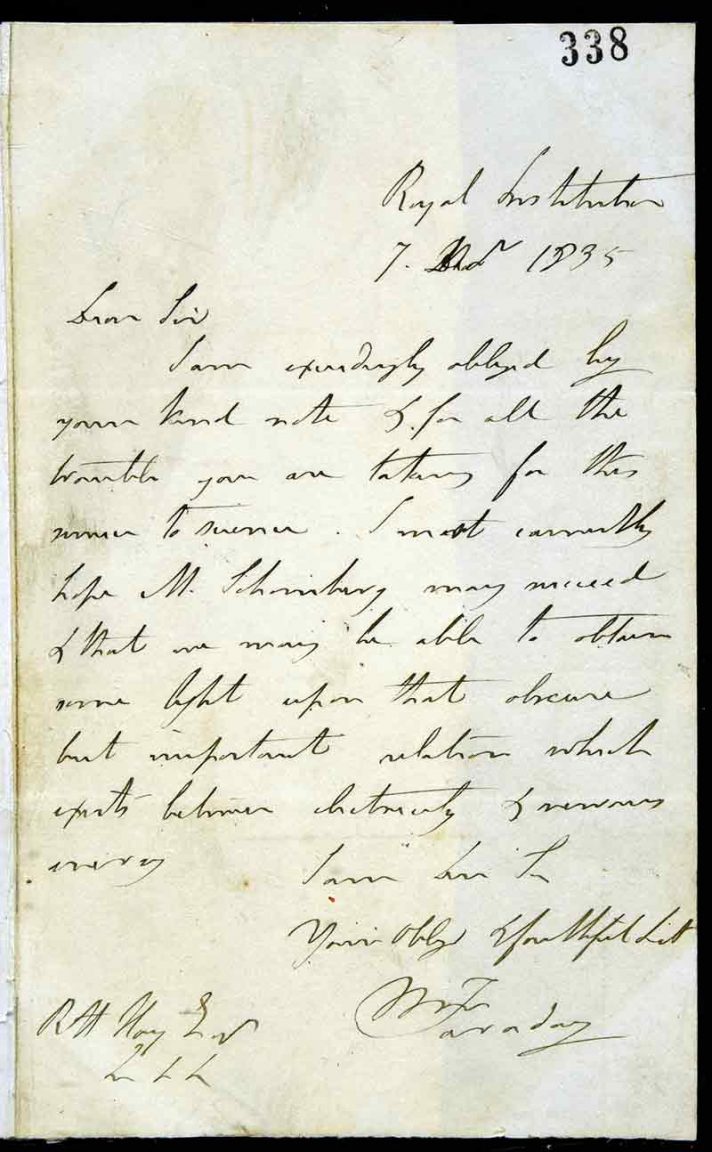 338
Royal Institution
7. 1835
Dear Sir
I am exceedingly obliged by
your kind note & for all the
trouble you are taking for this
service to science. I most earnestly
hope M. Schomburg may succeed
& that we may be able to obtain
some light upon that obscure
but important relation which
exists between electricity & nervous
energy
I am Dear Sir
Your Obligd & faithful Svt
M Faraday
R H Hay Esqr
&c &c &c